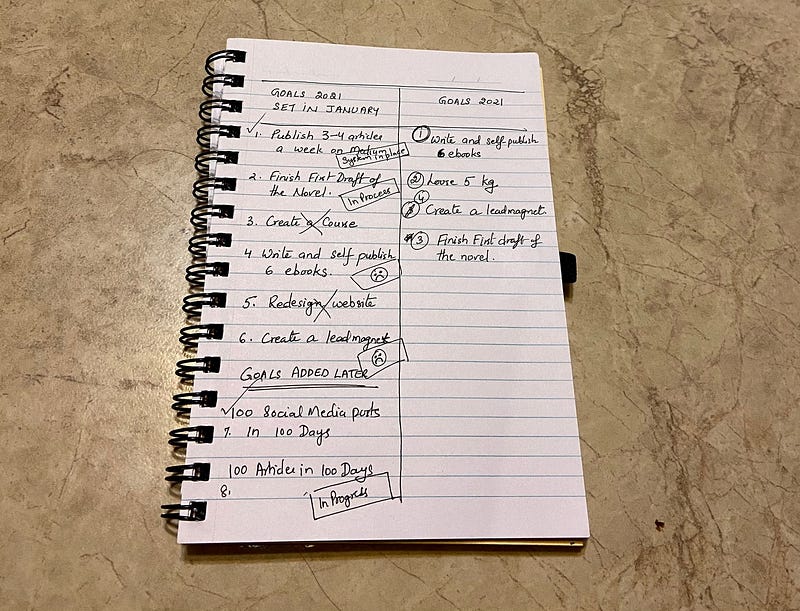 GOALS 2021
SET IN JANUARY
1. Publish 3-4 articles
a week on Medium
System in place
2. Finish First Draft of
the Novel.
In Process
3. Create a Course
4 Write and self publish
6 ebooks.
5. Redesign website
6. Create a leadmagnet
GOALS ADDED LATER
100 Social Media posts
7. In 100 Days
100 Articles in 100 Days
8.
In Progress
GOALS 2021
1 Write and self publish
6 ebooks
2 Loose 5 kg
4
Create a leadmagnet.
3 Finish First draft of
the novel.